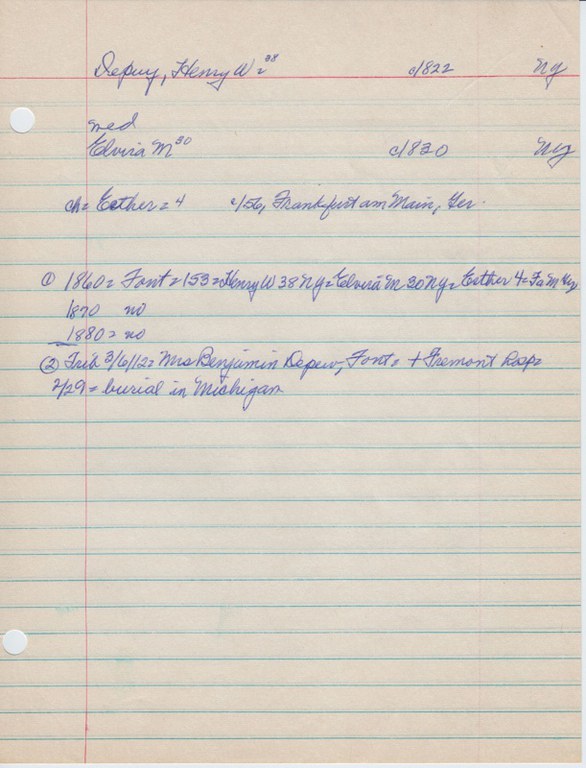 Depuy, Henry W = 38 c/1822 NY
med
Elvira M 30 c/1830 NY
ch = Esther = 4 c/56, Frankfurt am Main, Ger.
① 1860 = Font = 153 = Henry W 38 NY = Elvira M 30 NY = Esther 4 = Fa M
1870 no
1880 = no
② Trib 3/6/12 = Mrs Benjamin Depew, Font = + Fremont Hosp =
2/29 = burial in Michigan